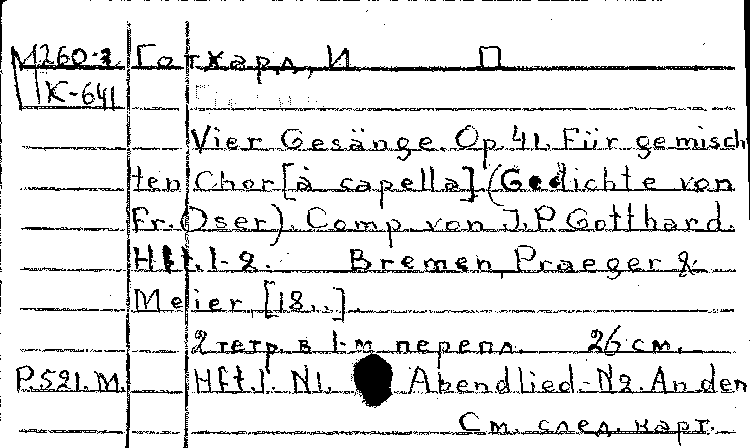 М260-2 Готхард, И П
К-641
Vier Gesänge. Op. 41. Für gemisch
ten Chor [à capella]. (Gedichte von
Fr. Oser). Comp. von J. P. Gotthard.
Hft. 1-2. Bremen, Praeger &
Meier, [18..].
2 тетр. в 1-м перепл. 26 см.
P.521.M. Hft. 1. N1. Abendlied.-N2. An den
См. след. карт.